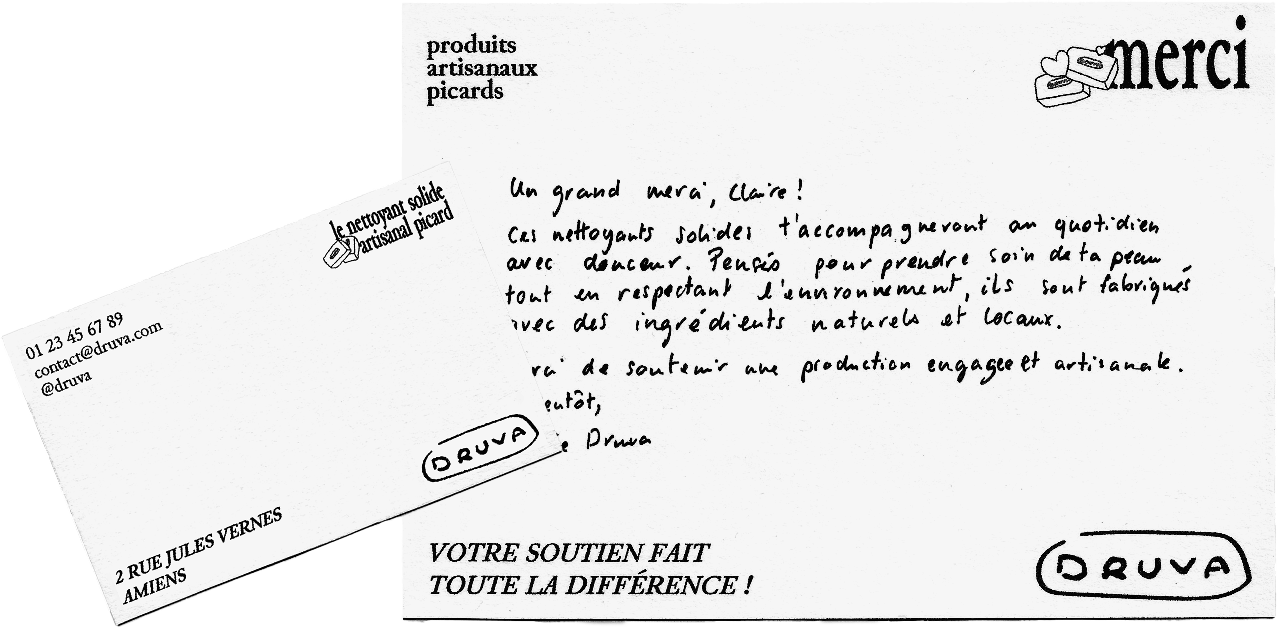 produits
artisanaux
picards
merci
Un grand merci, Claire !
Ces nettoyants solides t'accompagneront au quotidien
avec douceur. Pensés pour prendre soin de ta peau
tout en respectant l'environnement, ils sont fabriqués
avec des ingrédients naturels et locaux.
de soutenir une production engagée et artisanale.
Druva
VOTRE SOUTIEN FAIT
TOUTE LA DIFFÉRENCE !
DRUVA
le nettoyant solide
artisanal picard
01 23 45 67 89
contact@druva.com
@druva
DRUVA
2 RUE JULES VERNES
AMIENS